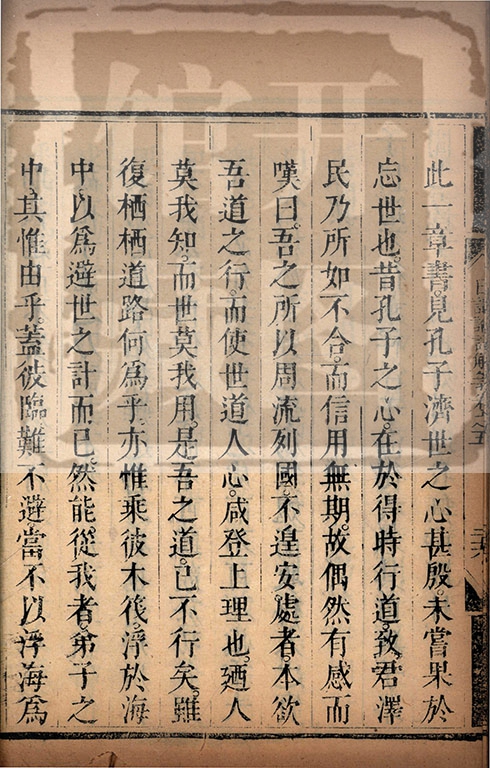 此一章書見孔子濟世之心甚殷未嘗果於
忘世也昔孔子之心在於得時行道致君澤
民乃所如不合而信用無期故偶然有感而
嘆曰吾之所以周流列國不遑安處者本欲
吾道之行而使世道人心咸登上理也廼人
莫我知而世莫我用是吾之道已不行矣雖
復栖栖道路何為乎亦惟乘彼木筏浮於海
中以為避世之計而已然能從我者弟子之
中其惟由乎蓋彼臨難不避當不以浮海為